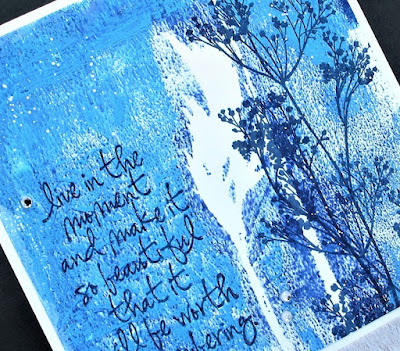 live in the
moment
and make it
so beautiful
that it
be worth